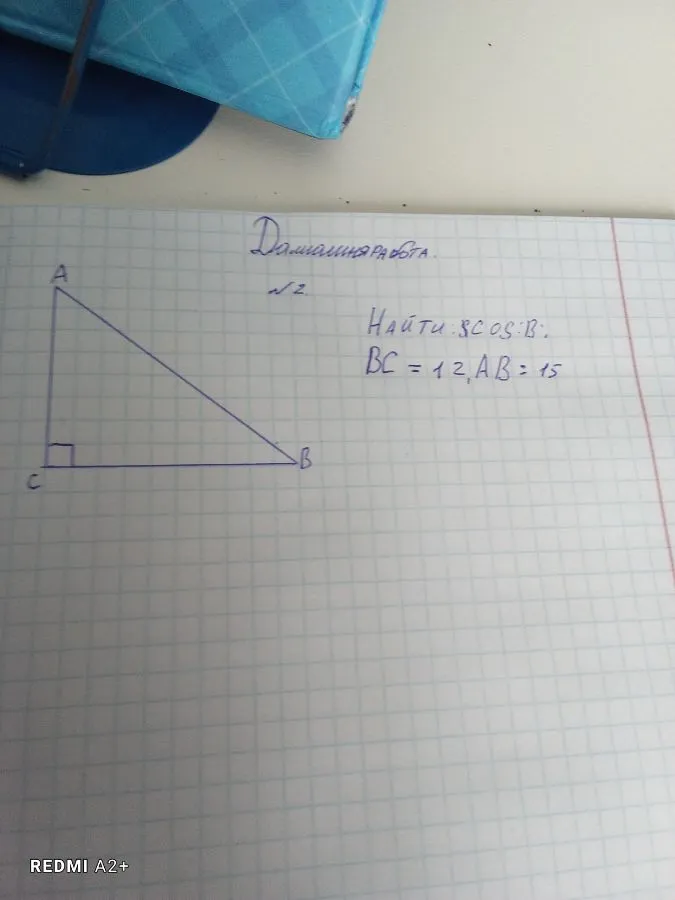 Домашняя работа.
№2.
A
Найти: cos B.
BC = 12, AB = 15
B
C
REDMI A2+